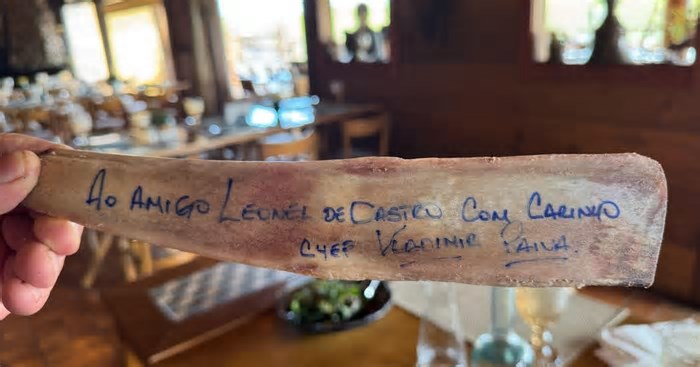 Ao Amigo Leonel de Castro Com Carinho
Chef Vladimir Paiva.